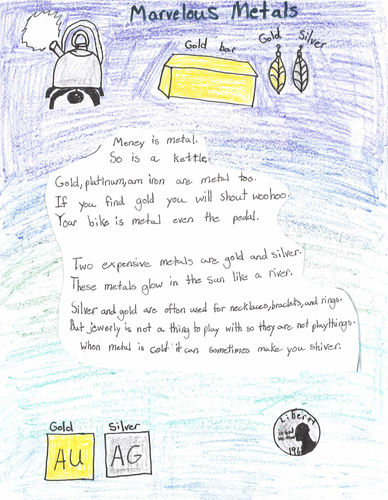 Marvelous Metals
Gold bar
Gold Silver
Money is metal.
So is a kettle.
Gold, platinum, an iron are metal too.
If you find gold you will shout woohoo.
Your bike is metal even the pedal.
Two expensive metals are gold and silver.
These metals glow in the sun like a river.
Silver and gold are often used for necklaces, braclets, and rings.
But jewerly is not a thing to play with so they are not playthings.
When metal is cold it can sometimes make you shiver.
Gold Silver
AU AG
Liberty